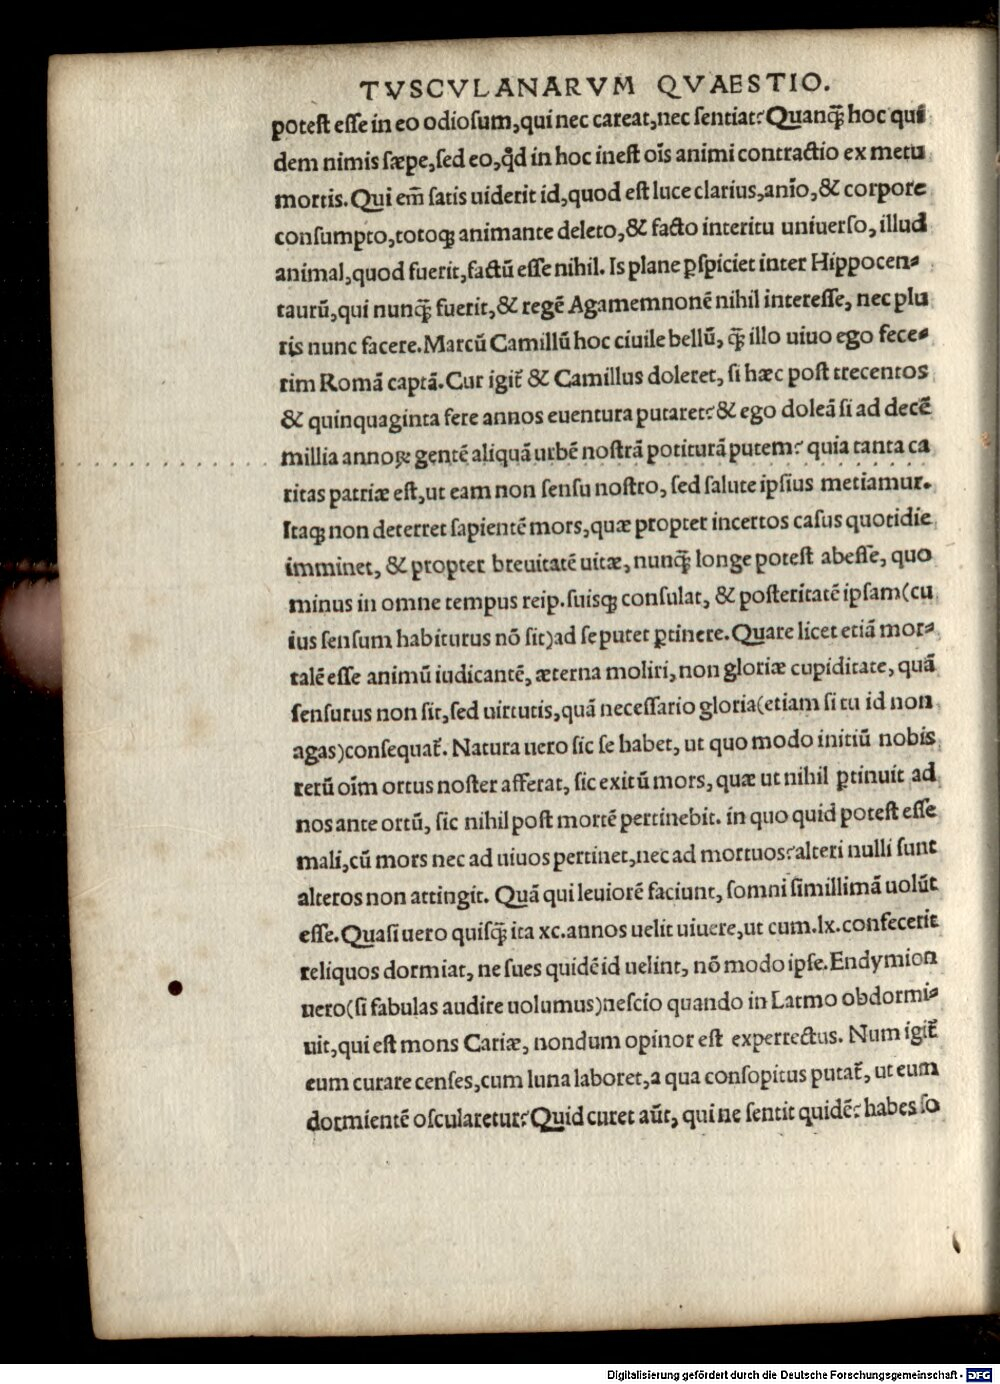 TVSCVLANARVM QVAESTIO.
poteſt eſſe in eo odioſum,qui nec careat,nec ſentiat? Quanq̃ hoc qui
dem nimis ſæpe,ſed eo,qd̓ in hoc ineſt oīs animi contractio ex metu
mortis. Qui em̄ ſatis uiderit id,quod eſt luce clarius,anīo,& corpore
conſumpto,totoq; animante deleto,& facto interitu uniuerſo, illud
animal,quod fuerit,factū eſſe nihil. Is plane ꝑſpiciet inter Hippocen-
taurū,qui nunq̃ fuerit,& regē Agamemnonē nihil intereſſe, nec plu
ris nunc facere.Marcū Camillū hoc ciuile bellū, q̃ illo uiuo ego fece-
rim Romā captā.Cur igit̃ & Camillus doleret, ſi hæc poſt trecentos
& quinquaginta fere annos euentura putaret? & ego doleā ſi ad decē
millia annoꝝ gentē aliquā urbē noſtrā potiturā putem? quia tanta ca
ritas patriæ eſt,ut eam non ſenſu noſtro, ſed ſalute ipſius metiamur.
Itaq; non deterret ſapientē mors,quæ propter incertos caſus quotidie
imminet, & propter breuitatē uitæ, nunq̃ longe poteſt abeſſe, quo
minus in omne tempus reip.ſuiſq; conſulat, & poſteritatē ipſam(cu
ius ſenſum habiturus nō ſit)ad ſe putet ꝑtinere. Quare licet etiā mor-
talē eſſe animū iudicantē, æterna moliri, non gloriæ cupiditate, quā
ſenſurus non ſit,ſed uirtutis,quā neceſſario gloria(etiam ſi tu id non
agas)conſequat̃. Natura uero ſic ſe habet, ut quo modo initiū nobis
rerū oīm ortus noſter afferat, ſic exitū mors, quæ ut nihil ꝑtinuit ad
nos ante ortū, ſic nihil poſt mortē pertinebit. in quo quid poteſt eſſe
mali,cū mors nec ad uiuos pertinet,nec ad mortuos? alteri nulli ſunt
alteros non attingit. Quā qui leuiorē faciunt, ſomni ſimillimā uolūt
eſſe. Quaſi uero quiſq̃ ita xc.annos uelit uiuere,ut cum.lx.confecerit
reliquos dormiat, ne ſues quidē id uelint, nō modo ipſe.Endymion
uero(ſi fabulas audire uolumus)neſcio quando in Latmo obdormi-
uit,qui eſt mons Cariæ, nondum opinor eſt experrectus. Num igit̃
eum curare cenſes,cum luna laboret,a qua conſopitus putat̃, ut eum
dormientē oſcularetur? Quid curet aūt, qui ne ſentit quidē? habes ſo
Digitalisierung gefördert durch die Deutsche Forschungsgemeinschaft - DFG